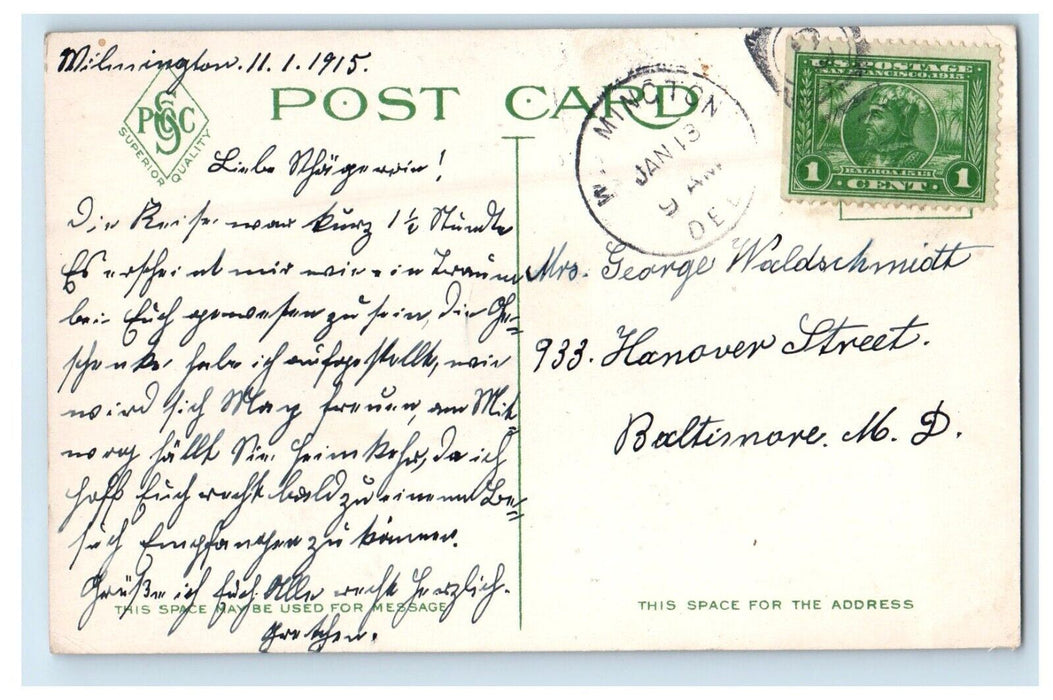 Wilmington. 11. 1. 1915.
POST CARD
PSC
SUPERIOR QUALITY
WILMINGTON
JAN 13
9 AM
DEL
U.S. POSTAGE
SAN FRANCISCO, 1915
BALBOA 1513
1 CENT 1
Liebe Schwägerin!
Die Reise war kurz 1½ Stunde
Es erscheint mir wie ein Traum
bei Euch gewesen zu sein, die Ge=
schenke habe ich aufgestellt, wie
wird sich May freuen, am Mit=
hällt Sie Heimkehr, da ich
hoff Euch recht bald zu einem Be=
such Empfangen zu können.
Grüße ich Euch Alle recht herzlich.
Gretchen.
Mrs. George Waldschmidt
933. Hanover Street.
Baltimore. M. D.
THIS SPACE MAY BE USED FOR MESSAGE
THIS SPACE FOR THE ADDRESS